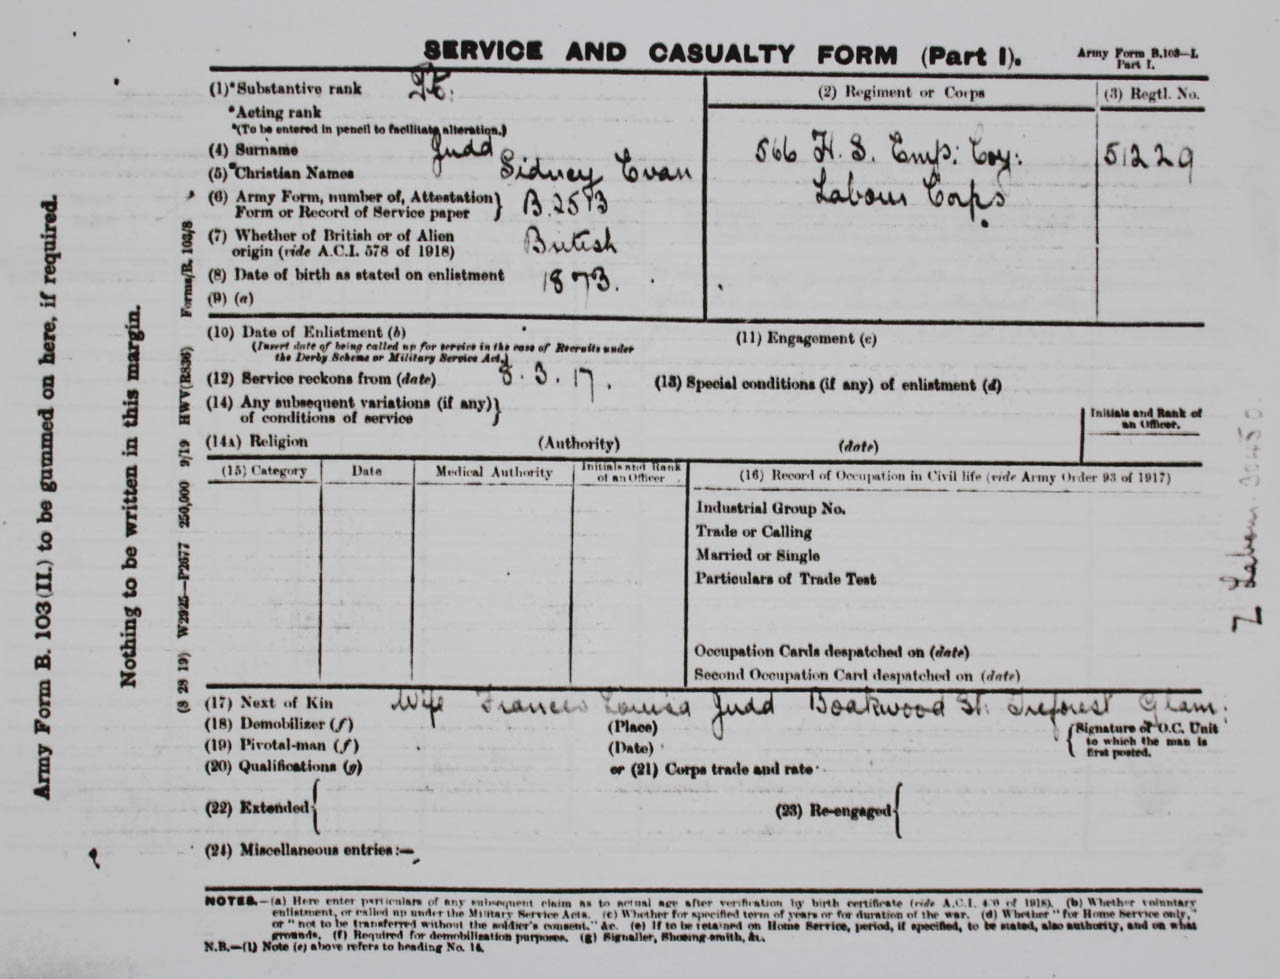 SERVICE AND CASUALTY FORM (Part I).
Army Form B.103—I.
Part I.
(1)*Substantive rank
*Acting rank
*(To be entered in pencil to facilitate alteration.)
(4) Surname Judd
(5) *Christian Names Sidney Evan
(6) Army Form, number of, Attestation
Form or Record of Service paper } B.2513
(7) Whether of British or of Alien
origin (vide A.C.I. 578 of 1918) British
(8) Date of birth as stated on enlistment 1873.
(9) (a)
(2) Regiment or Corps
566 H. S. Emp: Coy:
Labour Corps
(3) Regtl. No.
51229
(10) Date of Enlistment (b)
(Insert date of being called up for service in the case of Recruits under
the Derby Scheme or Military Service Act.)
(11) Engagement (c)
(12) Service reckons from (date) 8.3.17.
(13) Special conditions (if any) of enlistment (d)
(14) Any subsequent variations (if any)
of conditions of service }
Initials and Rank of
an Officer.
(14A) Religion (Authority) (date)
(15) Category Date Medical Authority Initials and Rank
of an Officer
(16) Record of Occupation in Civil life (vide Army Order 93 of 1917)
Industrial Group No.
Trade or Calling
Married or Single
Particulars of Trade Test
Occupation Cards despatched on (date)
Second Occupation Card despatched on (date)
(17) Next of Kin Wife Frances Louisa Judd Boakwood St: Treforest Glam:
(18) Demobilizer (f) (Place)
(19) Pivotal-man (f) (Date)
{ Signature of O.C. Unit
to which the man is
first posted.
(20) Qualifications (g) or (21) Corps trade and rate
(22) Extended { (23) Re-engaged {
(24) Miscellaneous entries:—
NOTES.—(a) Here enter particulars of any subsequent claim as to actual age after verification by birth certificate (vide A.C.I. of 1918). (b) Whether voluntary
enlistment, or called up under the Military Service Acts. (c) Whether for specified term of years or for duration of the war. (d) Whether "for Home Service only,"
or "not to be transferred without the soldier's consent," &c. (e) If to be retained on Home Service, period, if specified, to be stated, also authority, and on what
grounds. (f) Required for demobilisation purposes. (g) Signaller, Shoeing-smith, &c.
N.B.—(1) Note (e) above refers to heading No. 14.
Army Form B. 103 (II.) to be gummed on here, if required.
Nothing to be written in this margin.
(S 28 19) W2925—P2677 250,000 9/19 HWV(R836) Forms/B. 103/8
Z Labour